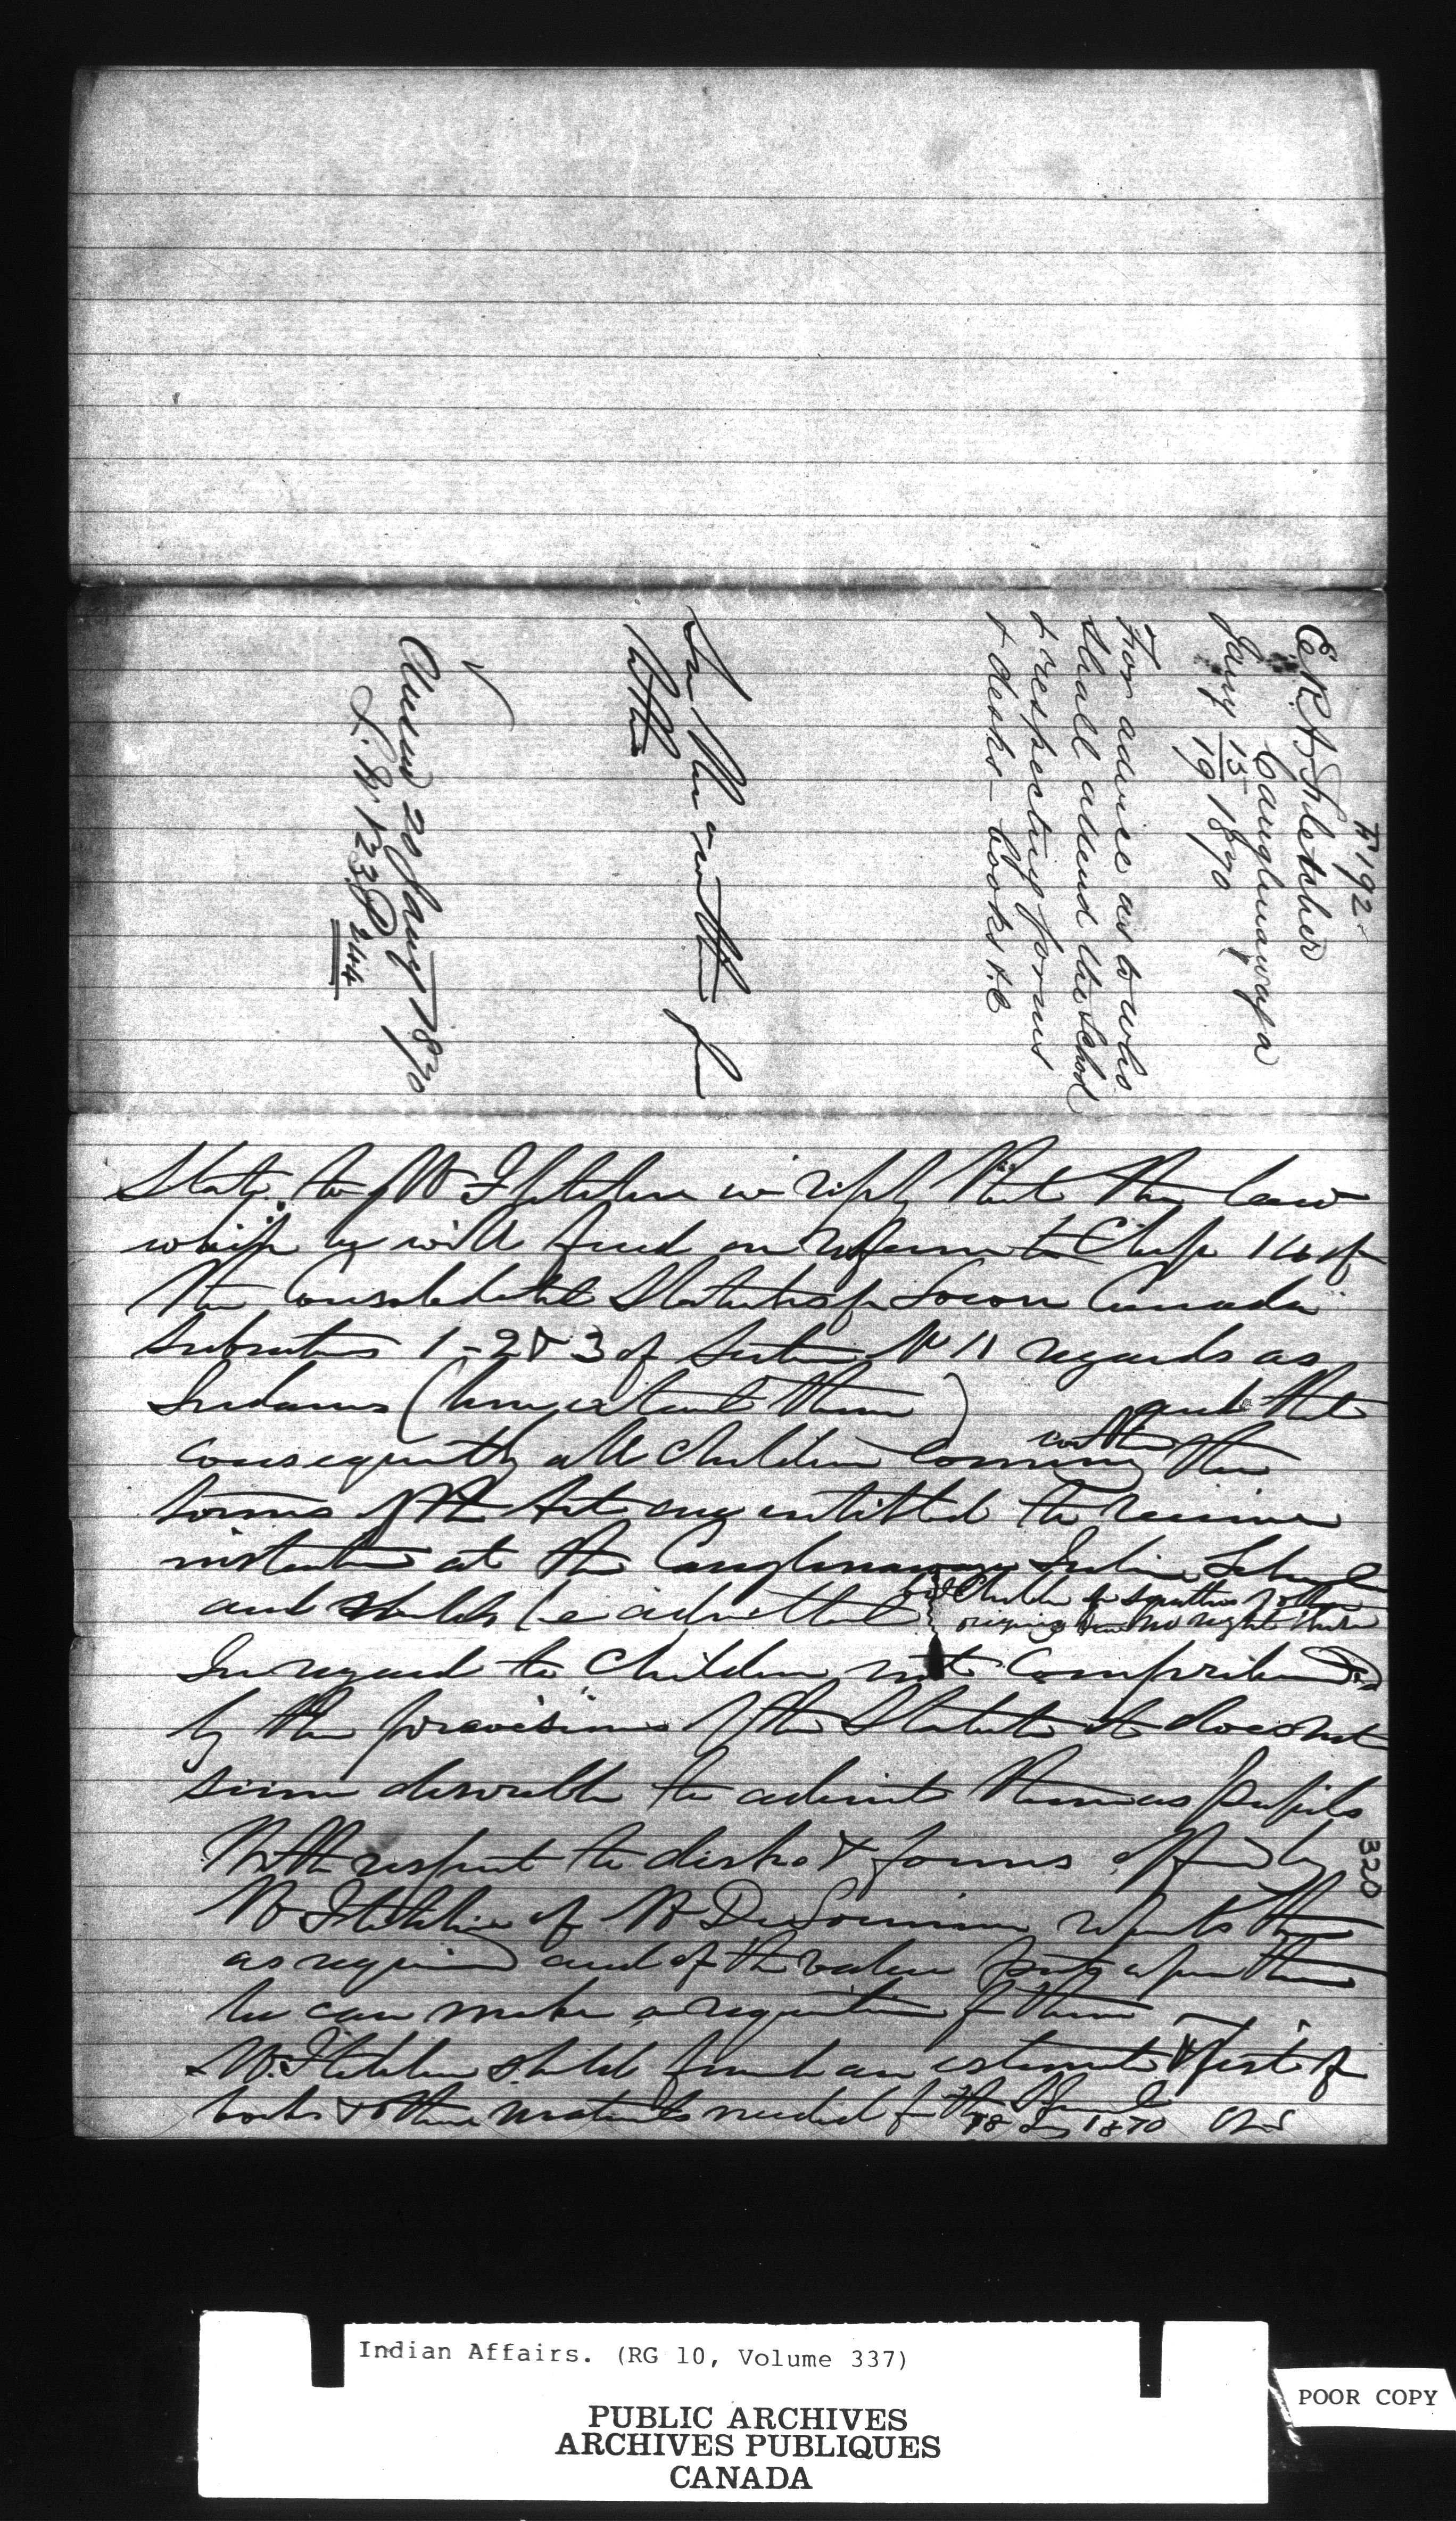 F 192
E. R. A. Fletcher
Caughnawaga
Jany 15/19 1870
For advice as to who
shall attend the School
& respecting forms
& desks - books &c
See within for
Answd 20 Jany 1870
L. B. No 23 P 244
State to Mr Fletcher in reply that the law
which he will find on reference to Chap 14 of
the Consolidated Statutes for Lower Canada
Subsections 1-2 & 3 of Section No 11 regards as
Indians (here extract them) and that
consequently all Children coming within the
terms of the Act are entitled to receive
instruction at the Caughnawaga Indian School
and should be admitted but Children of Squatters of other
origin have no right there
In regard to Children not comprehended
by the provisions of the Statute it does not
seem desirable to admit them as pupils
With respect to desks & forms offered by
Mr Fletcher if Mr De Lorimier wants them
as required and of the value put upon them
he can make a requisition for them
Mr. Fletcher should furnish an estimate & list of
books & other materials needed for the School
18 Jany 1870
320
Indian Affairs. (RG 10, Volume 337)
PUBLIC ARCHIVES
ARCHIVES PUBLIQUES
CANADA
POOR COPY